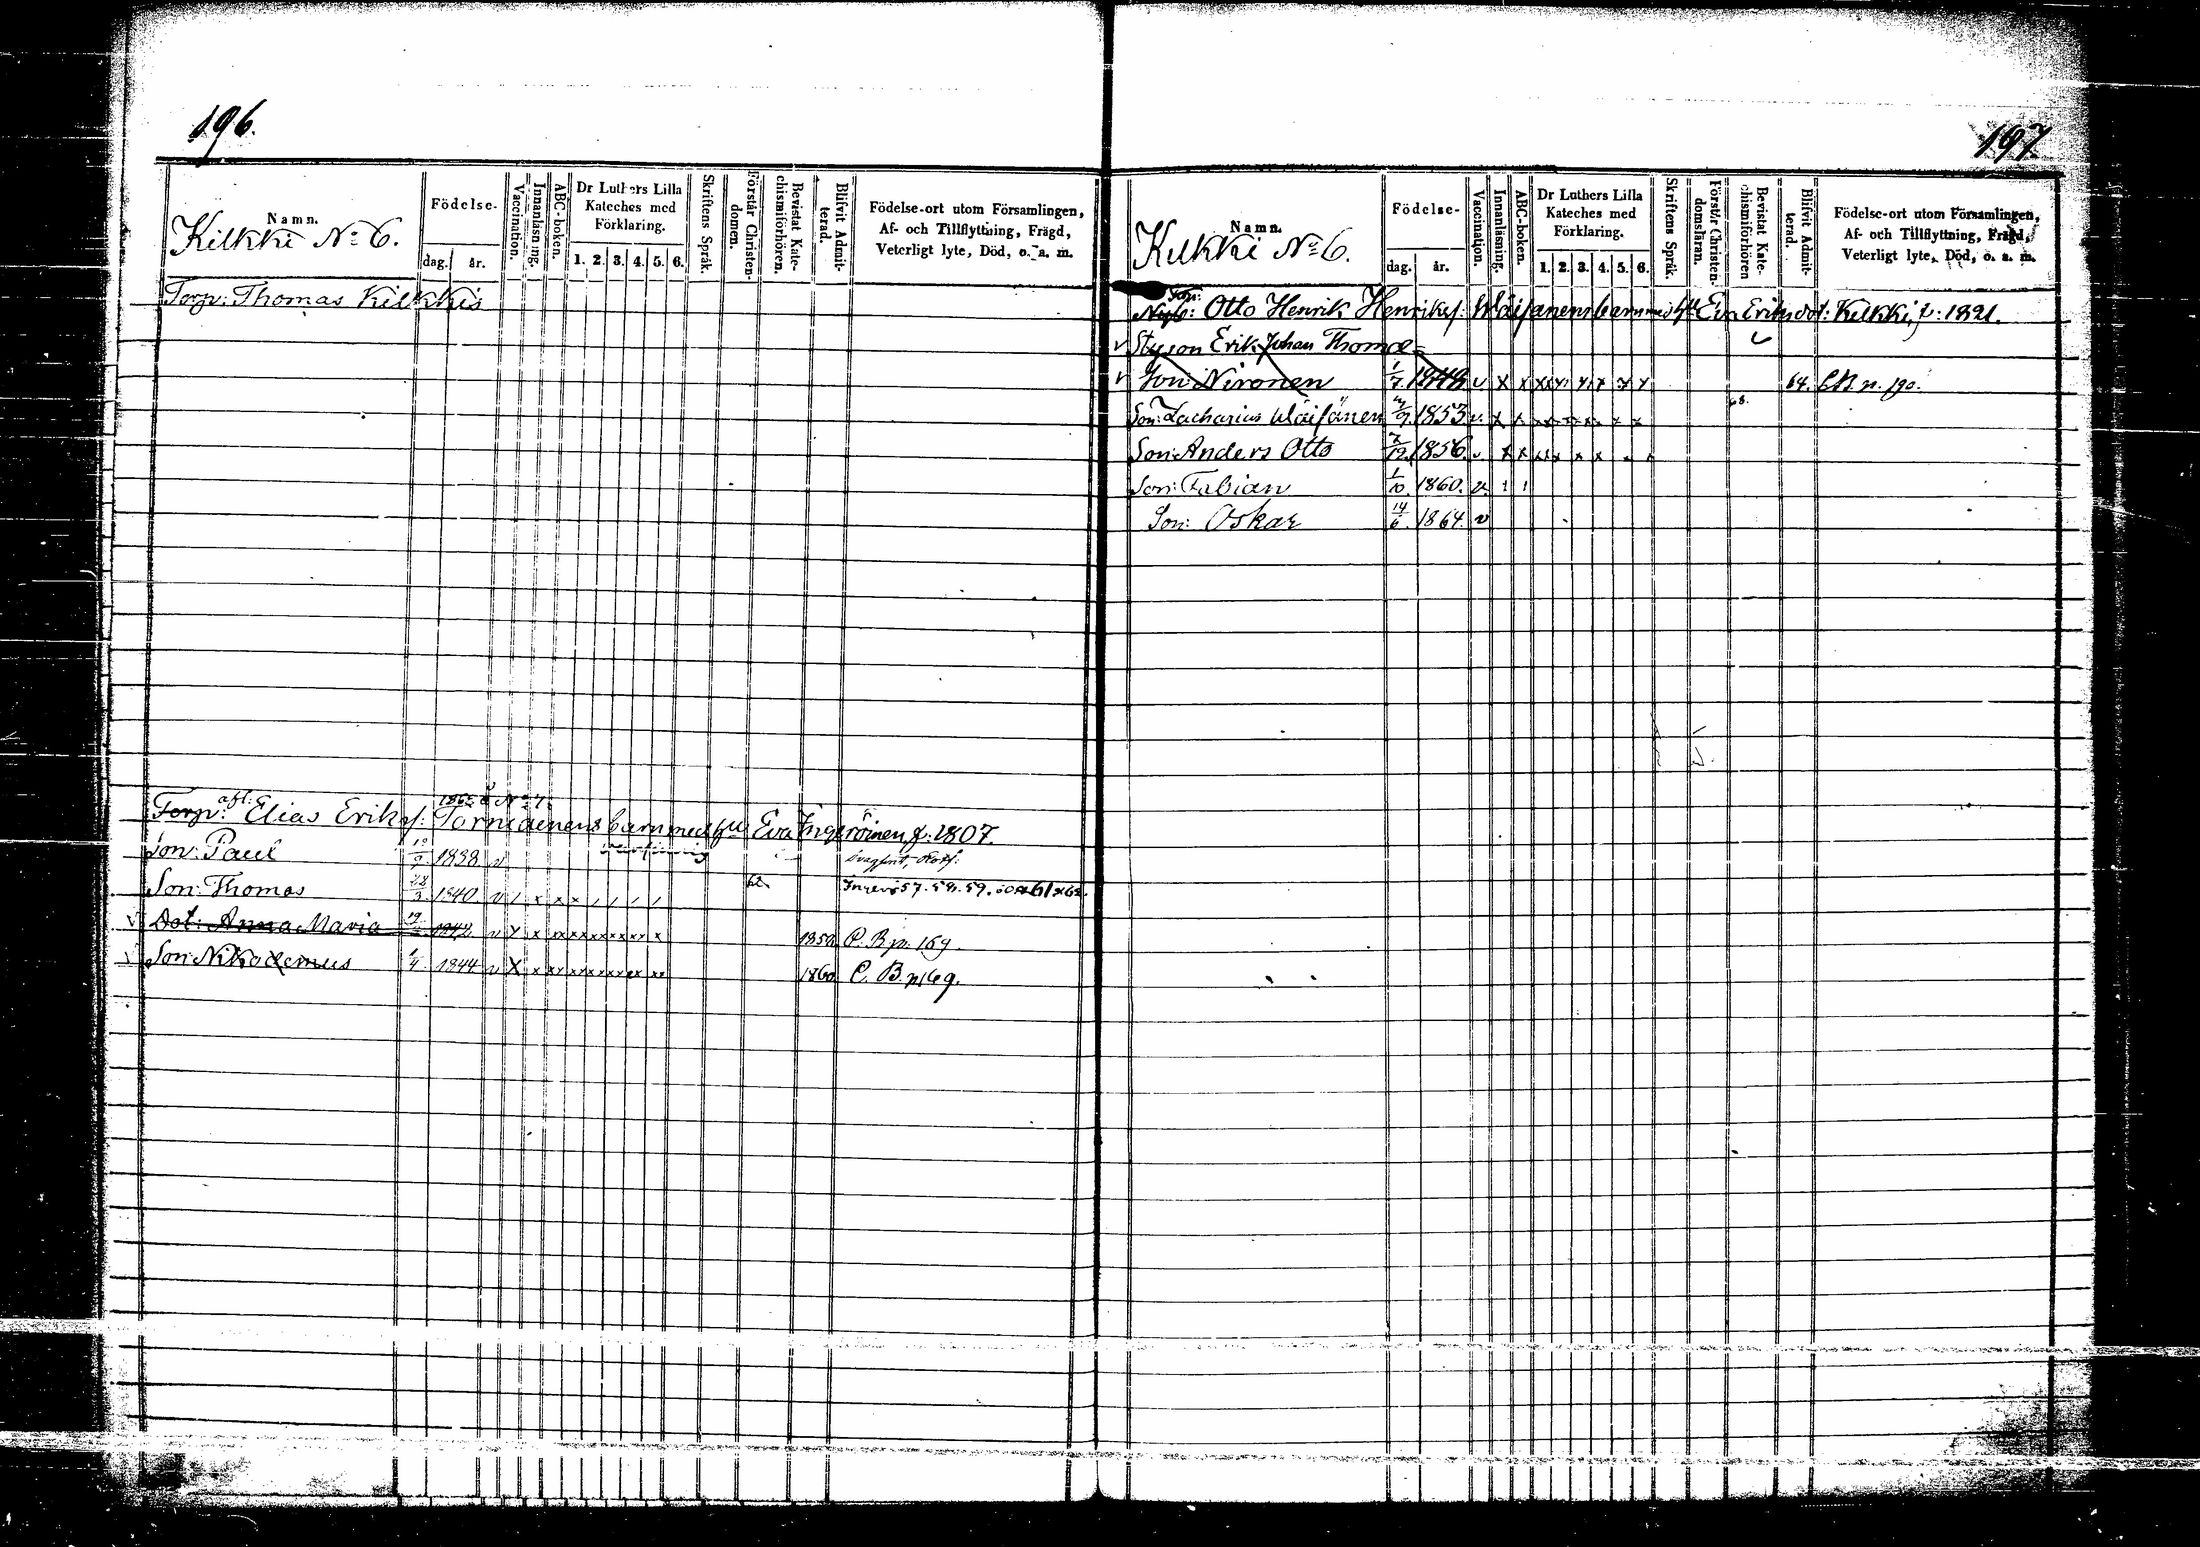 196.
Namn.
Kilkki No 6.
Födelse-
dag. år.
Vaccination.
Innanläsning.
ABC-boken.
Dr Luthers Lilla
Kateches med
Förklaring.
1. 2. 3. 4. 5. 6.
Skriftens Språk.
Förstår Christen-
domen.
Bevistat Kate-
chismiförhören.
Blifvit Admit-
terad.
Födelse-ort utom Församlingen,
Af- och Tillflyttning, Frägd,
Veterligt lyte, Död, o. a. m.
Torp: Thomas Kilkkis
afl: 1862 å No 7.
Torp: Elias Eriks: Torniaenens barn med hu Eva Ingeröinen, f: 1807.
Son: Paul 19/9 1838 v
Son: Thomas 22/3 1840. v 62. 57. 58. 59. 60 61 62.
v Dot: Anna Maria 19 1842. v 1859 C. B. p. 169.
Son: Nikodemus 1/4 1844 v 1860 C. B. p 169.
197
Namn.
Kilkki No 6.
Födelse-
dag. år.
Vaccination.
Innanläsning.
ABC-boken.
Dr Luthers Lilla
Kateches med
Förklaring.
1. 2. 3. 4. 5. 6.
Skriftens Språk.
Förstår Christen-
domsläran.
Bevistat Kate-
chismiförhören
Blifvit Admit-
terad.
Födelse-ort utom Församlingen,
Af- och Tillflyttning, Frägd,
Veterligt lyte, Död, o. a. m.
Otto Henrik Henriks: Wäisänens barn med hu Eva Eriksdot: Kilkki, f: 1821.
v Styson Erik Johan Thomæ-
v son Nironen 1/7. 1848. v x x x x x x x x 64. C.B. p. 190.
Son: Zacharias Wäisänen 1853 v. x x x x x x x x 68.
Son: Anders Otto 7/12. 1856. v x x x x x x x x
Son: Fabian 1/10. 1860. v.
Son: Oskar 14/6. 1864. v